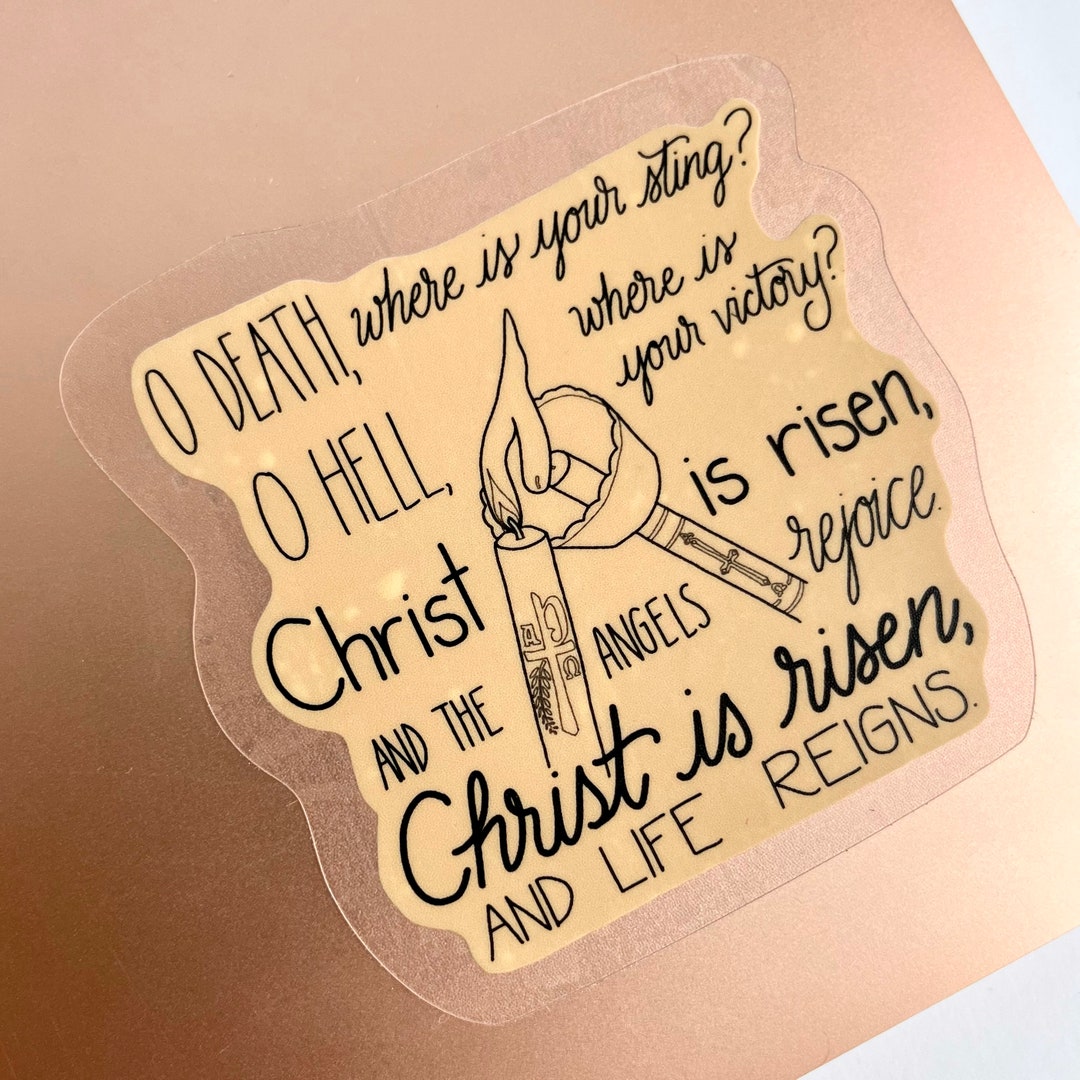 O DEATH, where is your sting?
O HELL, where is
your victory?
Christ is risen,
AND THE ANGELS rejoice.
Christ is risen,
AND LIFE REIGNS.
Α
Ω